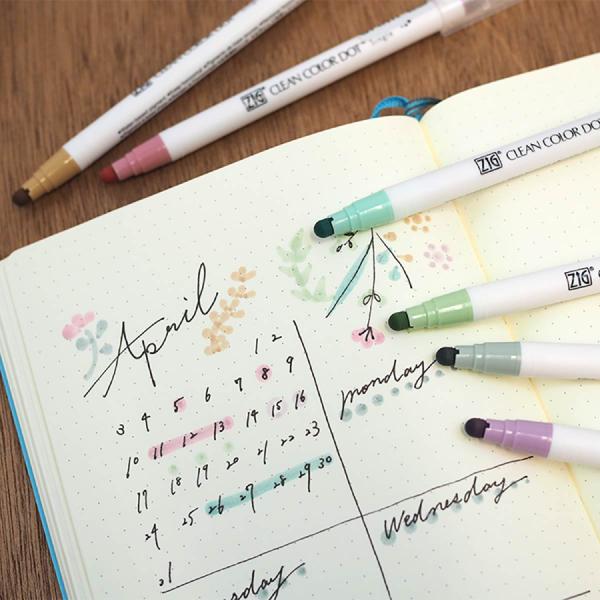 ZIG CLEAN COLOR DOT
ZIG CLEAN COLOR DOT
ZIG
April
1 2
3 4 5 6 7 8 9
10 11 12 13 14 15 16
17 18 19 20 21 22 23
24 25 26 27 28 29 30
monday
Wednesday